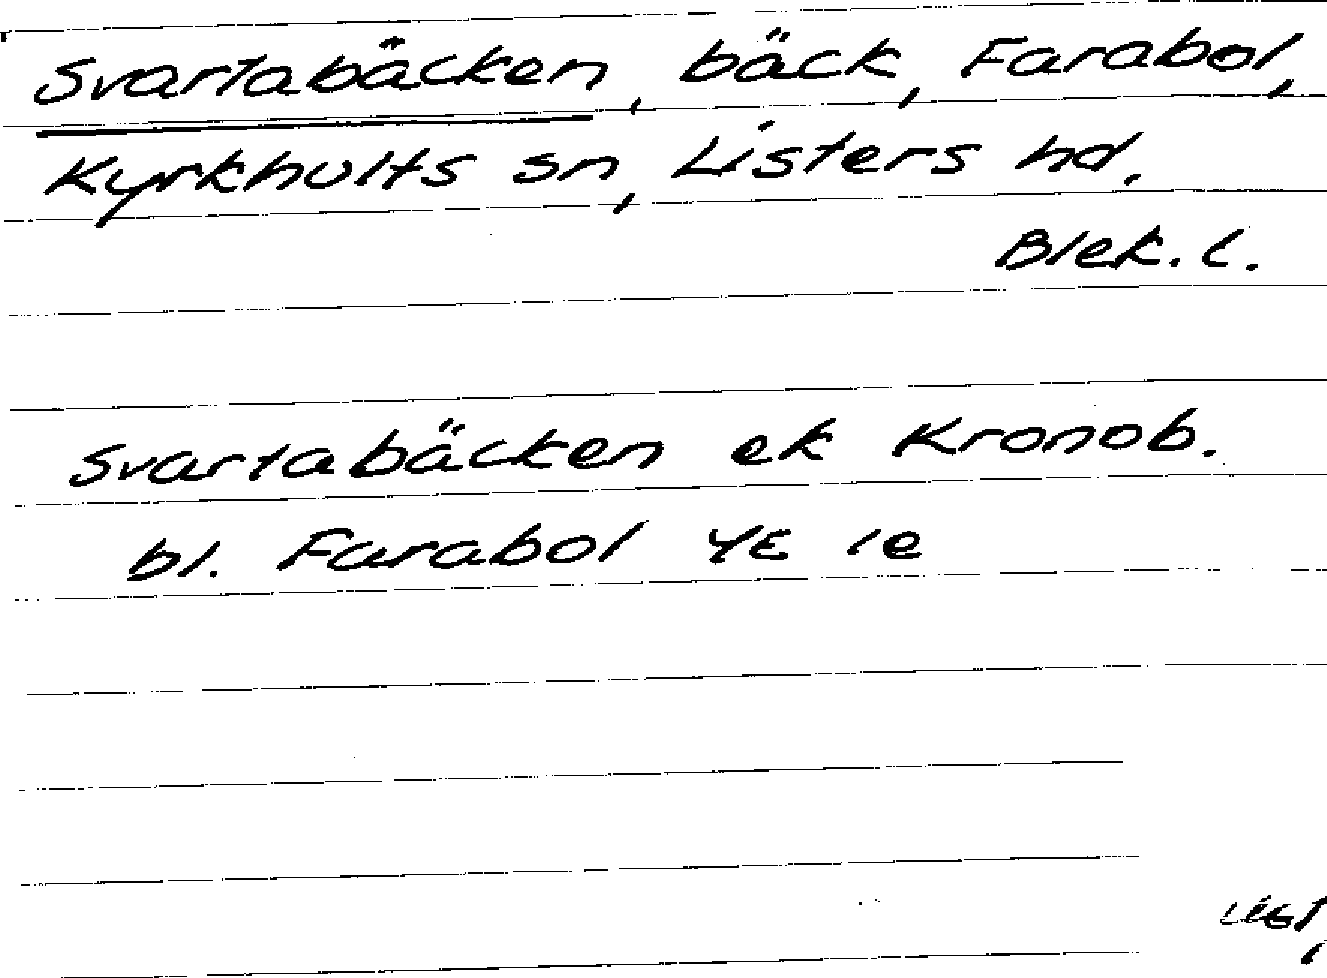 Svartabäcken, bäck, Farabol,
Kyrkhults sn, Listers hd,
Blek. l.
Svartabäcken ek Kronob.
bl. Farabol 4E 1e